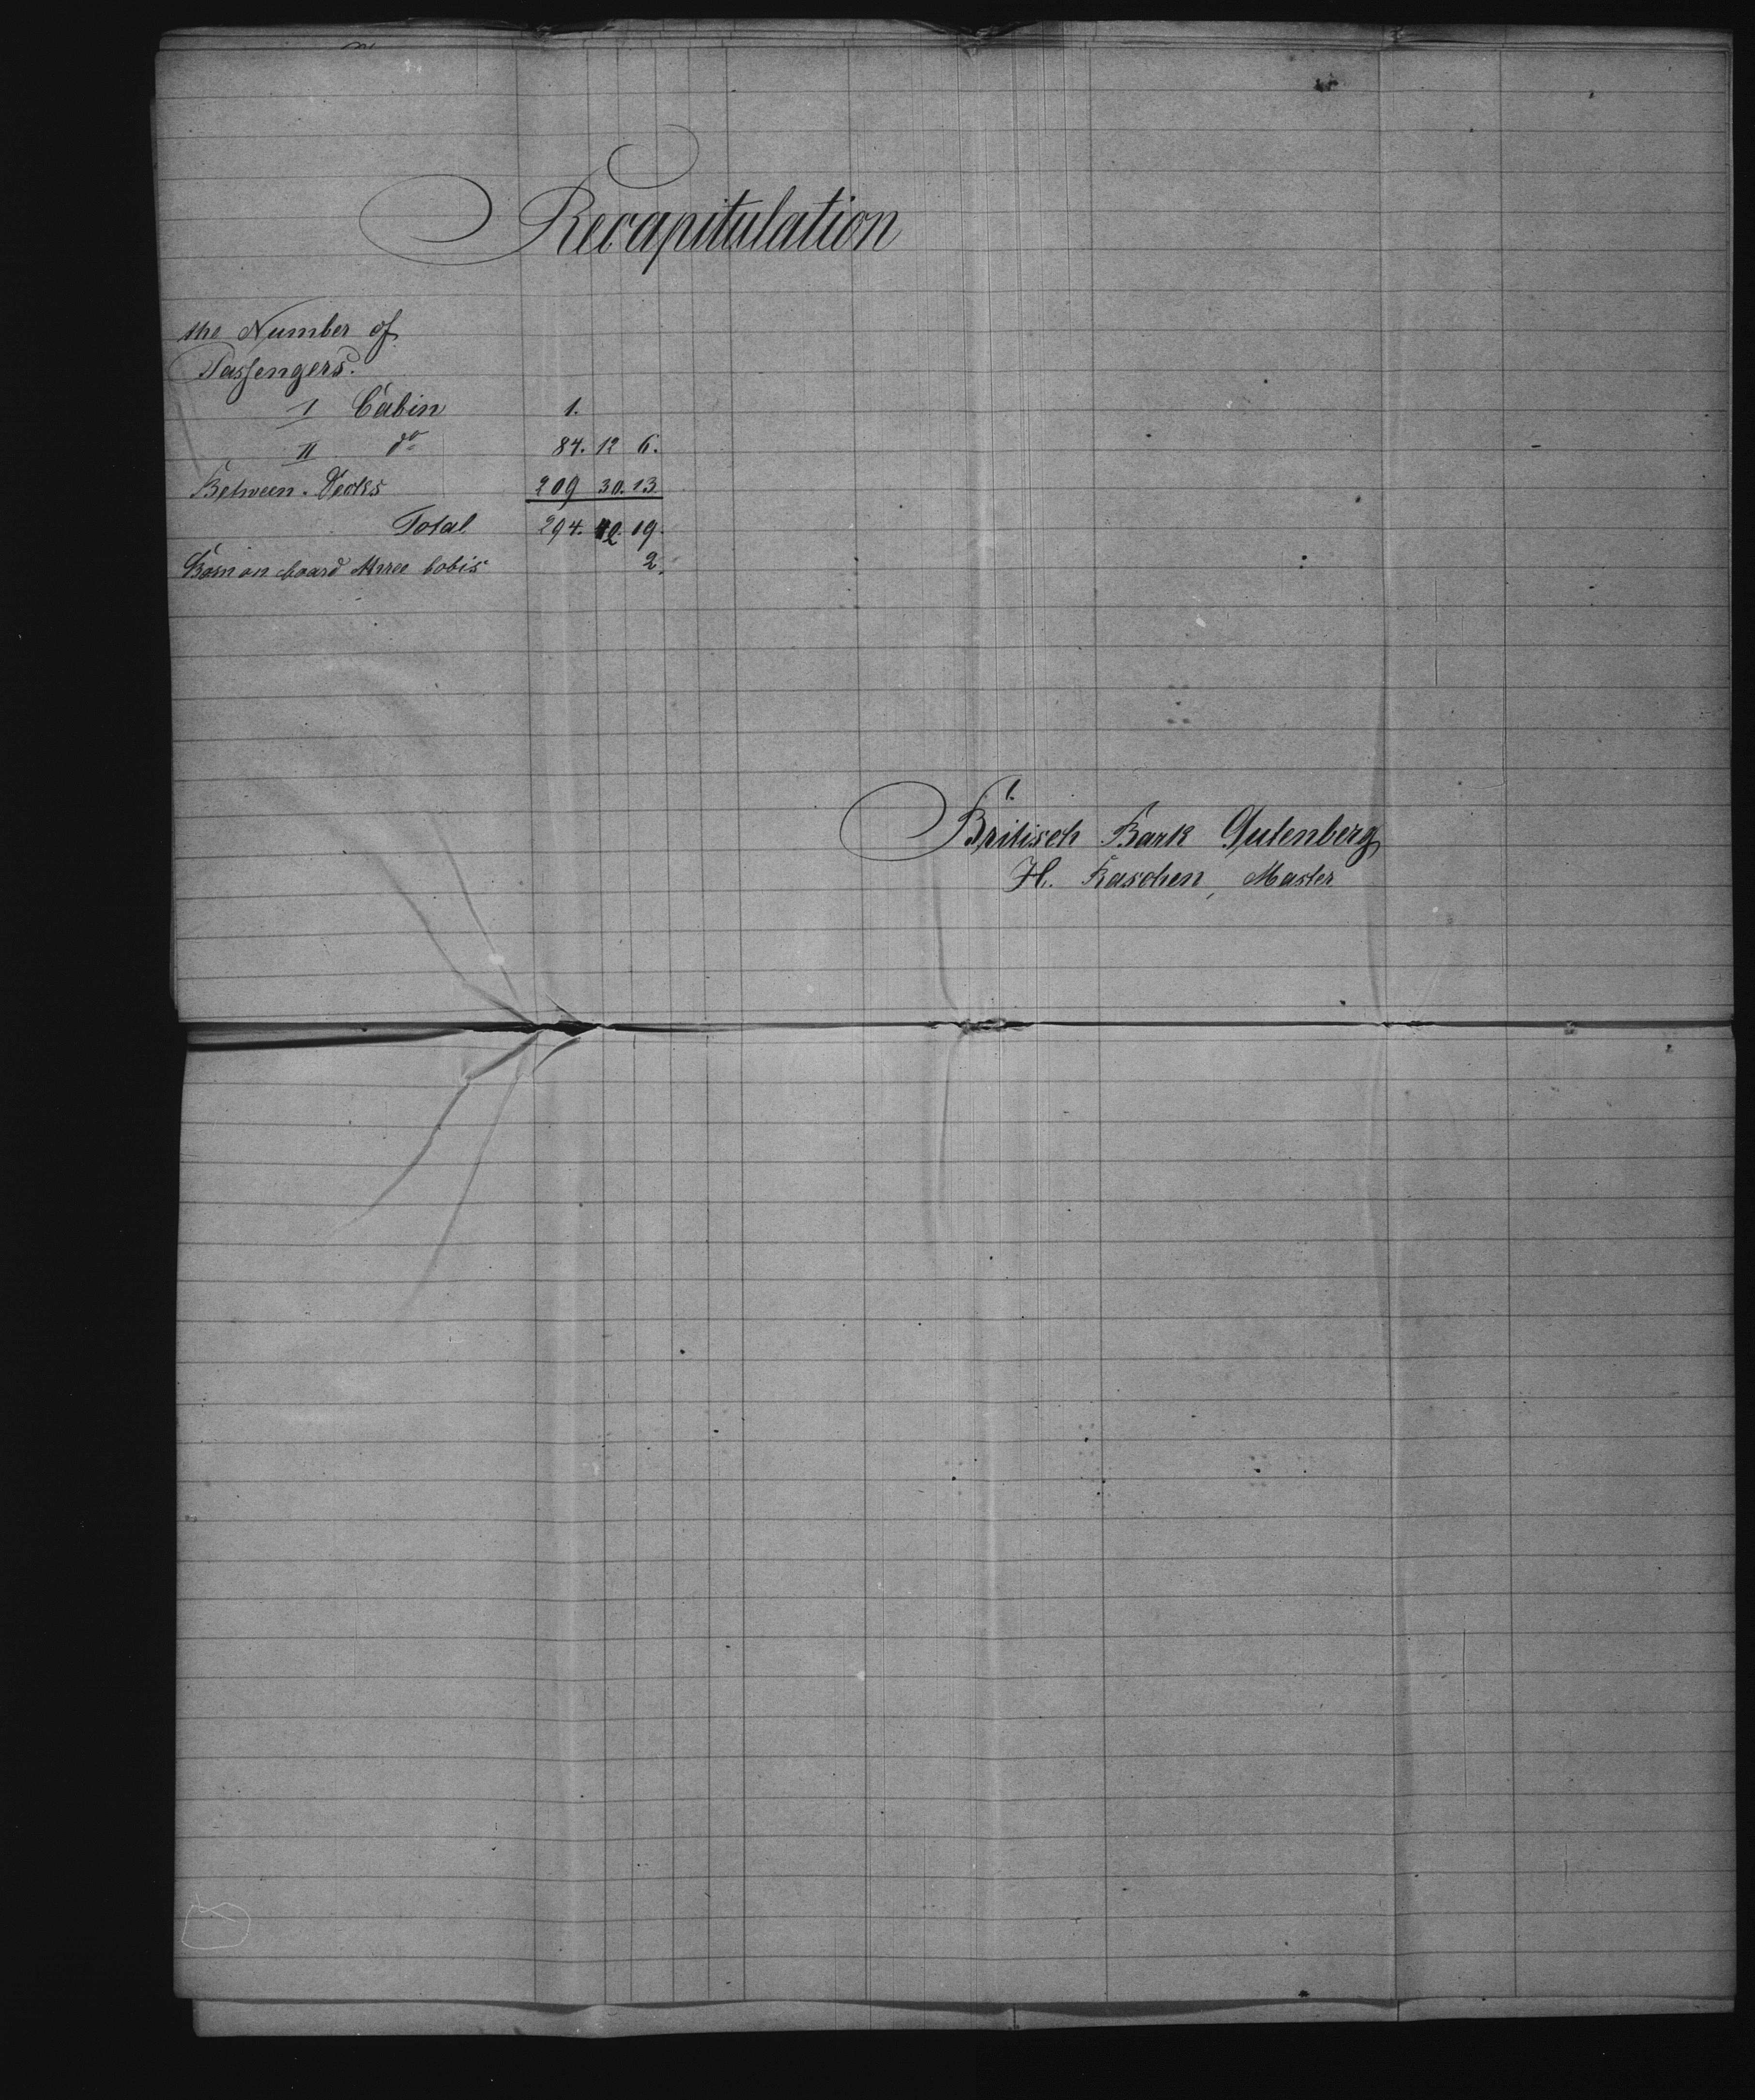 Recapitulation
the Number of
Passengers.
I Cabin 1.
II do 84. 12 6.
Between. Decks 209 30. 13
Total 294. 42. 19.
Born on board three bobis 2.
1.
Britisch Bark Gutenberg
H. Raschen, Master